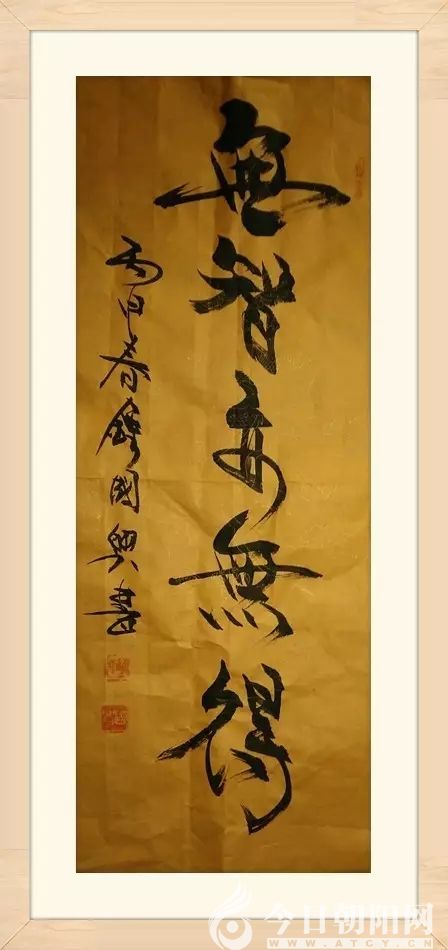 無智亦無得
丙申春鐘國興書
今日朝阳网
WWW.ATCY.CN